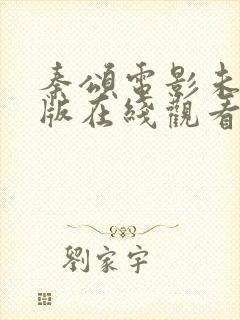 秦頌電影未
版在綫觀看
劉家宇